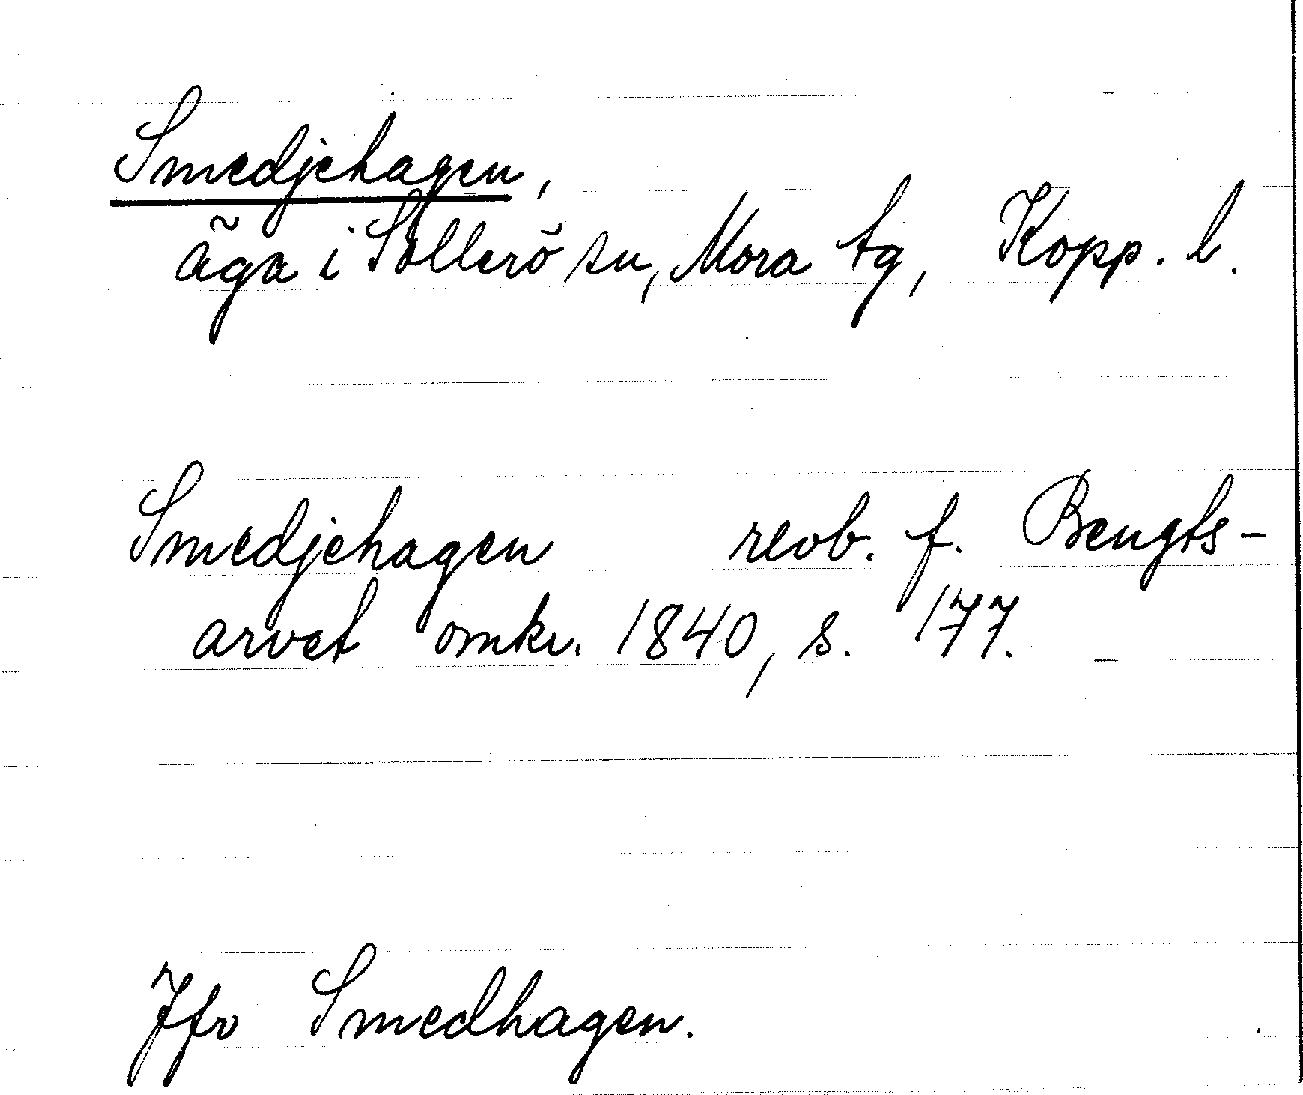 Smedjehagen,
äga i Sollerö sn, Mora tg, Kopp. l.
Smedjehagen revb. f. Bengts-
arvet omkr. 1840, s. 177.
Jfr Smedhagen.